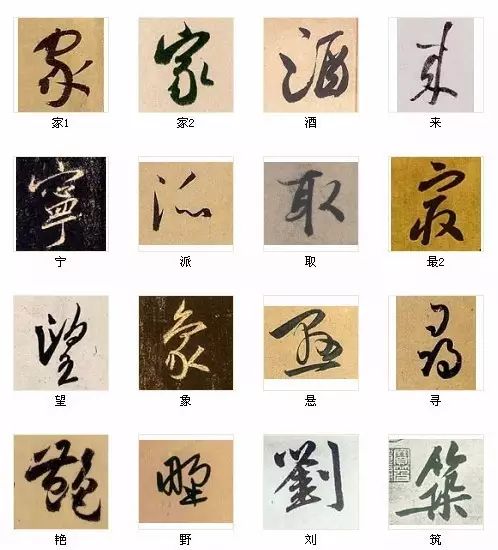 家 家 酒 来
家1 家2 酒 来
寧 派 取 最
宁 派 取 最2
望 象 悬 尋
望 象 悬 寻
艶 野 劉 築
艳 野 刘 筑